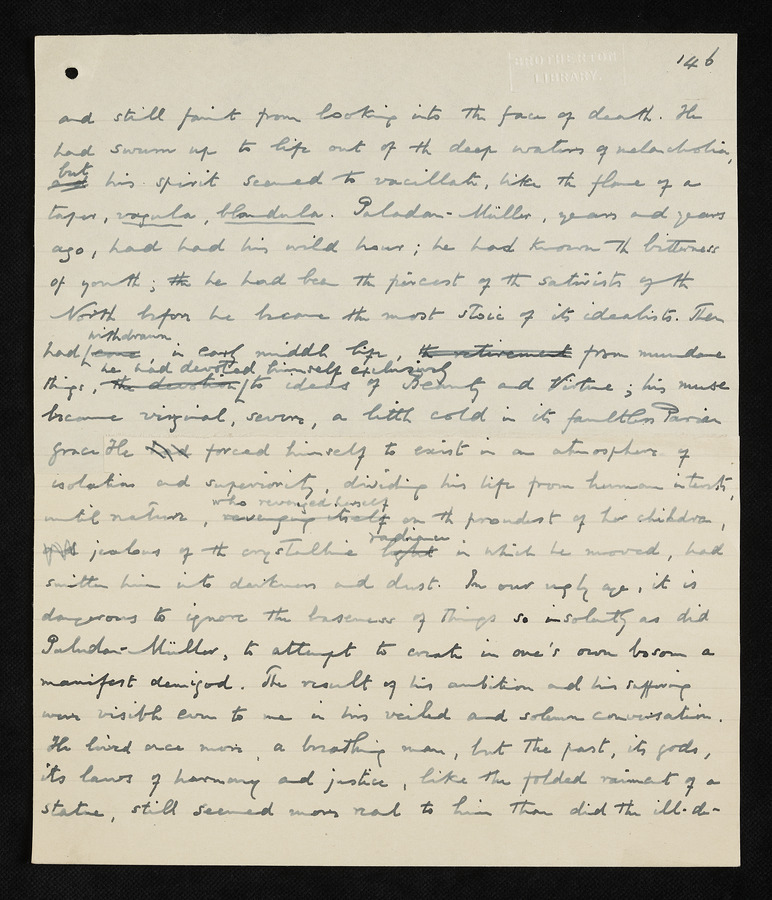 BROTHERTON
LIBRARY.
146
and still faint from looking into the face of death. He
had swum up to life out of the deep waters of melancholia,
but
and his spirit seemed to vacillate, like the flame of a
taper, vagula, blandula. Paludan-Müller, years and years
ago, had had his wild hour; he had known the bitterness
of youth; the he had been the fiercest of the satirists of the
North before he became the most stoic of its idealists. Then
withdrawn
had gone, in early middle life, the retirement from mundane
he had devoted himself exclusively
things, the devotion to ideas of Beauty and Virtue; his muse
became virginal, severe, a little cold in its faultless Parian
grace. He had forced himself to exist in an atmosphere of
isolation and superiority, dividing his life from human interests,
who revenged herself
until nature, revenging itself on the proudest of her children,
radiance
and jealous of the crystalline light in which he moved, had
smitten him into darkness and dust. In our ugly age, it is
dangerous to ignore the baseness of things so insolently as did
Paludan-Müller, to attempt to create in one's own bosom a
manifest demigod. The result of his ambition and his suffering
were visible even to me in his veiled and solemn conversation.
He lived once more, a breathing man, but the past, its gods,
its laws of harmony and justice, like the folded raiment of a
statue, still seemed more real to him than did the ill-de-